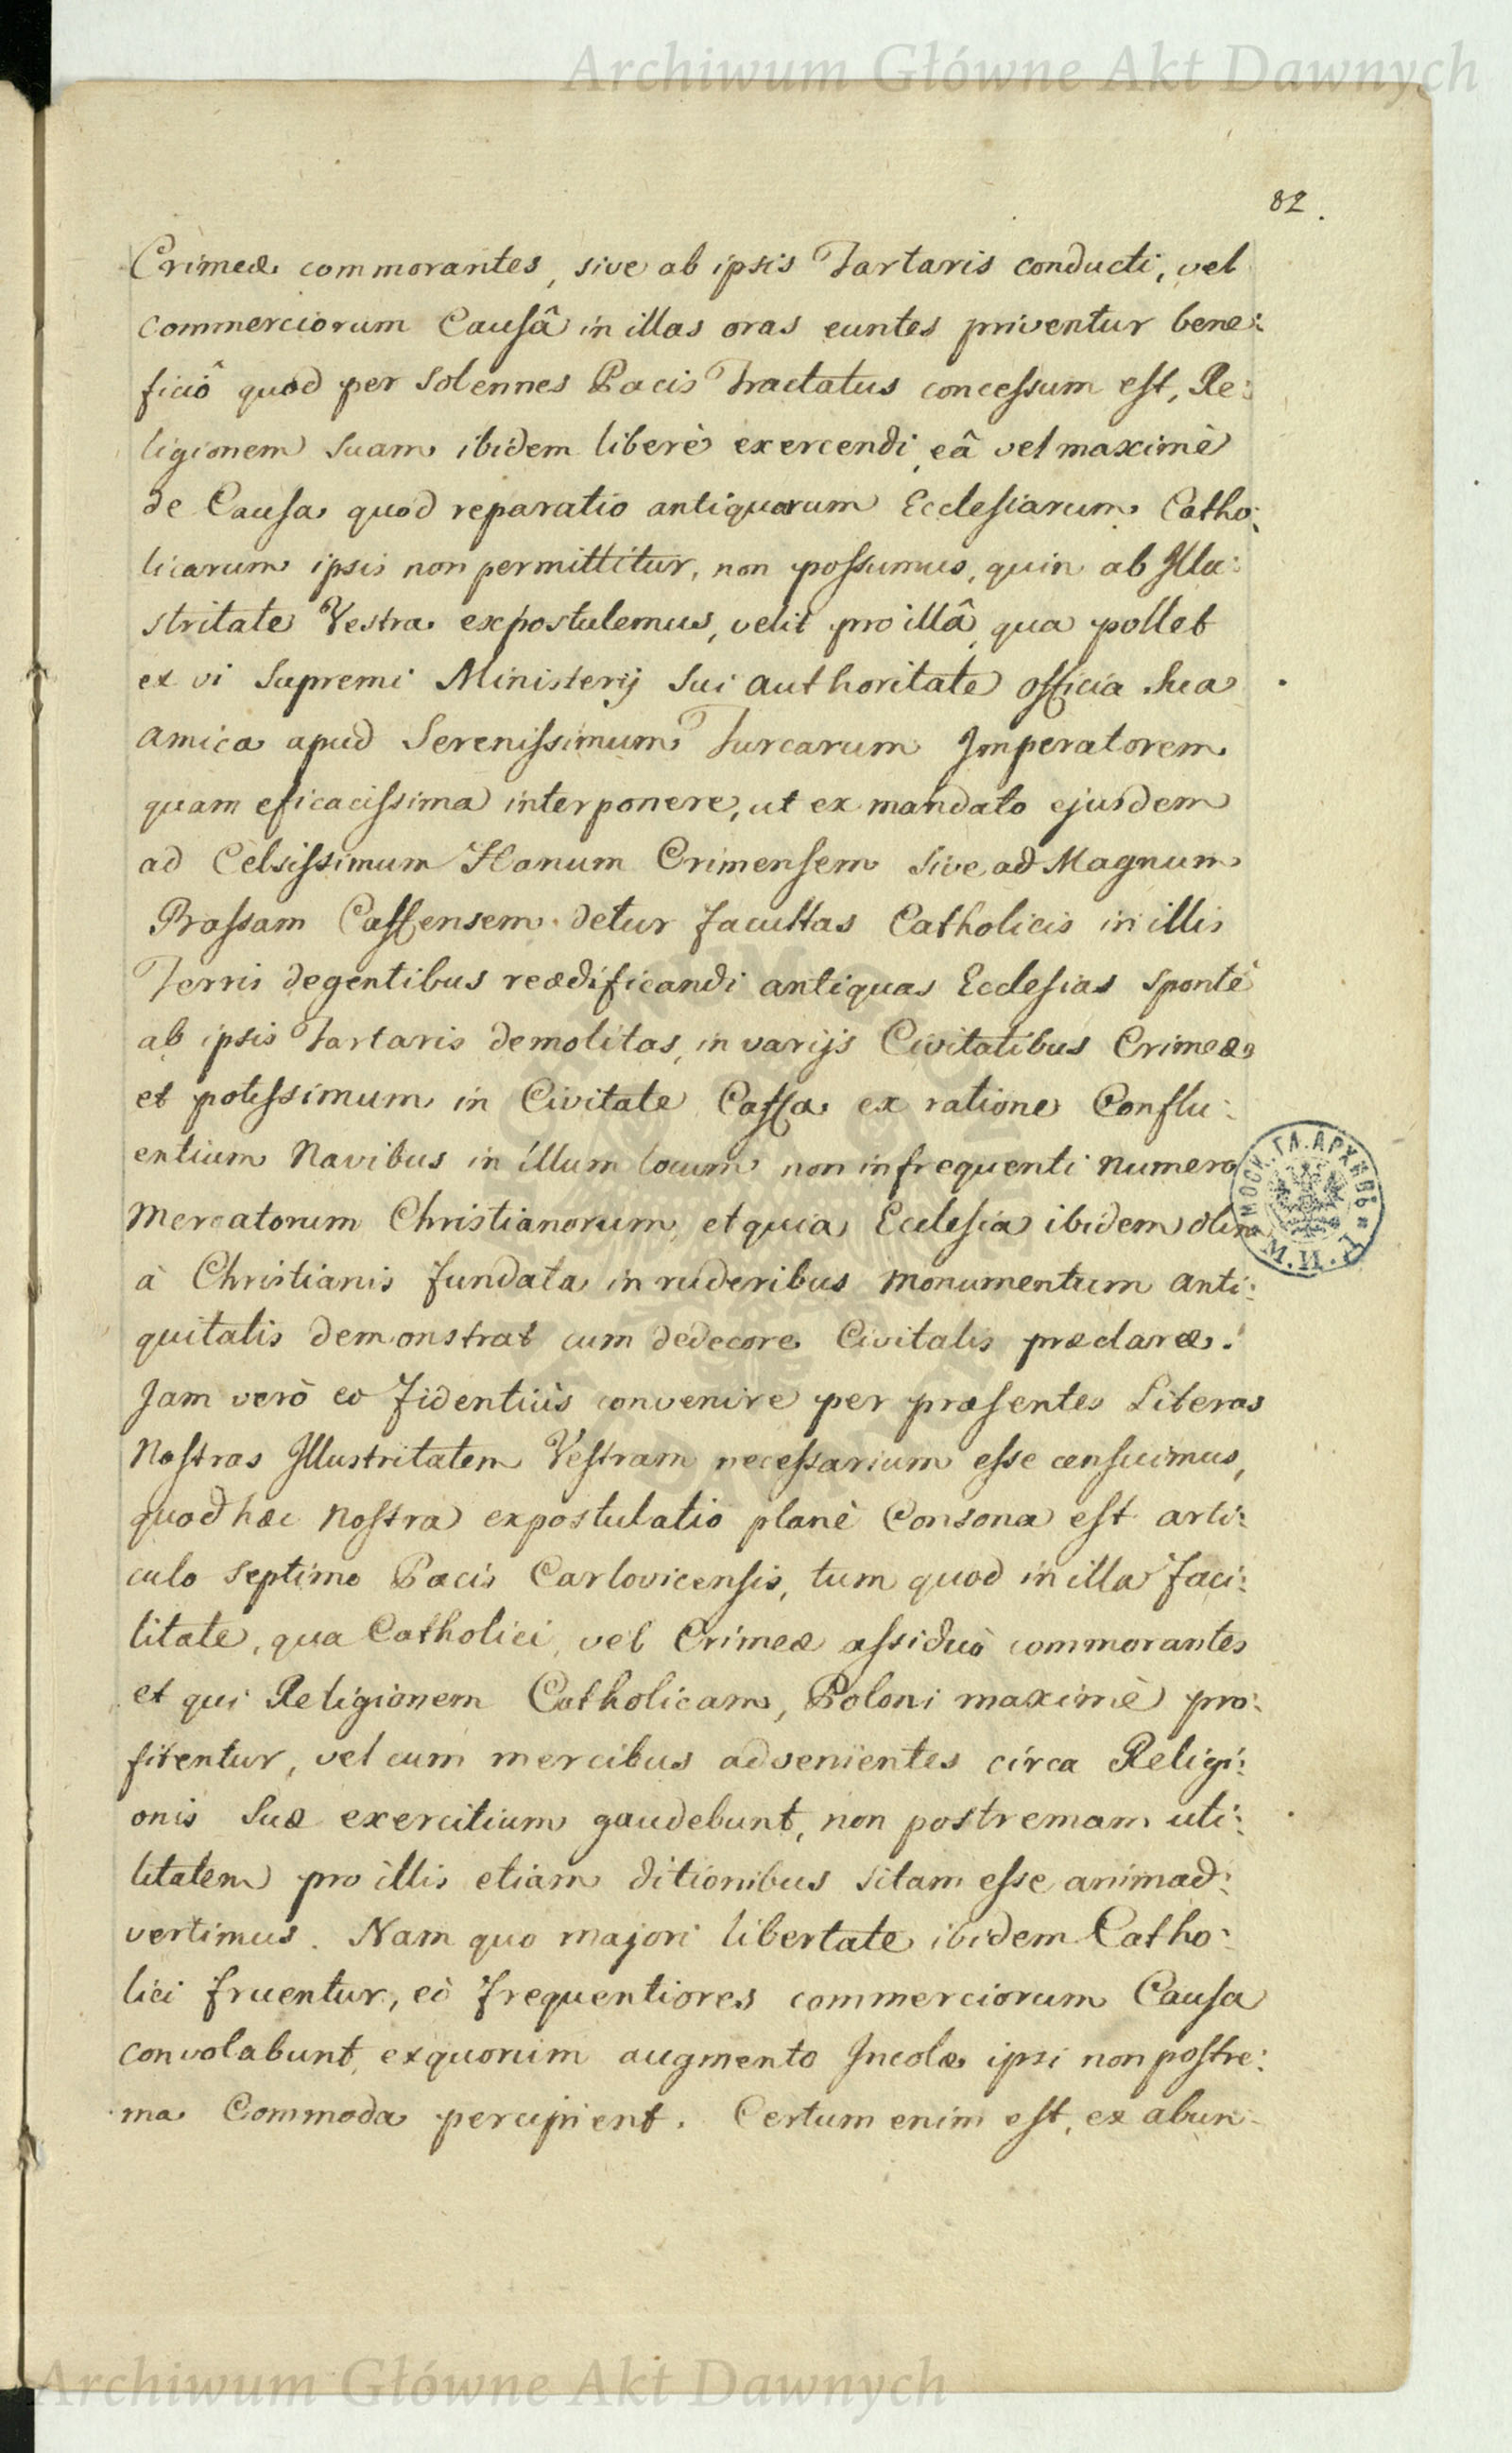 Archiwum Główne Akt Dawnych
82.
Crimeæ commorantes, sive ab ipsis Tartaris conducti, vel
commerciorum Causâ in illas oras euntes priventur bene:
ficiô quod per Solennes Pacis Tractatus concessum est, Re:
ligionem Suam ibidem liberè exercendi, eâ vel maximè
de Causa quod reparatio antiquarum Ecclesiarum Catho:
licarum ipsis non permittitur, non possumus, quin ab Illu:
stritate Vestra expostulemus, velit pro illâ, qua pollet
ex vi Supremi Ministerij Sui authoritate officia Sua
amica apud Serenissimum Turcarum Imperatorem
quam eficacissima interponere, ut ex mandato ejusdem
ad Celsissimum Hanum Crimensem Sive ad Magnum
Bassam Caffensem detur facultas Catholicis in illis
Terris degentibus reædificandi antiquas Ecclesias Spontè
ab ipsis Tartaris demolitas, in varijs Civitatibus Crimeæ,
et potissimum in Civitate Caffa ex ratione Conflu:
entium Navibus in illum locum non infrequenti numero
Mercatorum Christianorum, et quia Ecclesia ibidem olim
à Christianis fundata in ruderibus monumentum anti:
quitatis demonstrat cum dedecore Civitatis præclaræ.
Jam verò eo fidentiùs convenire per præsentes Literas
Nostras Illustritatem Vestram necessarium esse censuimus,
quod hæc Nostra expostulatio planè Consona est arti:
culo Septimo Pacis Carlovicensis, tum quod in illa faci:
litate, qua Catholici, vel Crimeæ assiduò commorantes
et qui Religionem Catholicam, Poloni maximè pro:
fitentur, vel cum mercibus advenientes circa Religi:
onis Suæ exercitium gaudebunt, non postremam uti:
litatem pro illis etiam ditionibus Sitam esse animad:
vertimus. Nam quo majori libertate ibidem Catho:
lici fruentur, eò frequentiores commerciorum Causa
convolabunt, ex quorum augmento Incolæ ipsi non postre:
ma Commoda percipient. Certum enim est, ex abun:
МОСК. ГЛ. АРХИВЪ
М. И. Д.
Archiwum Główne Akt Dawnych